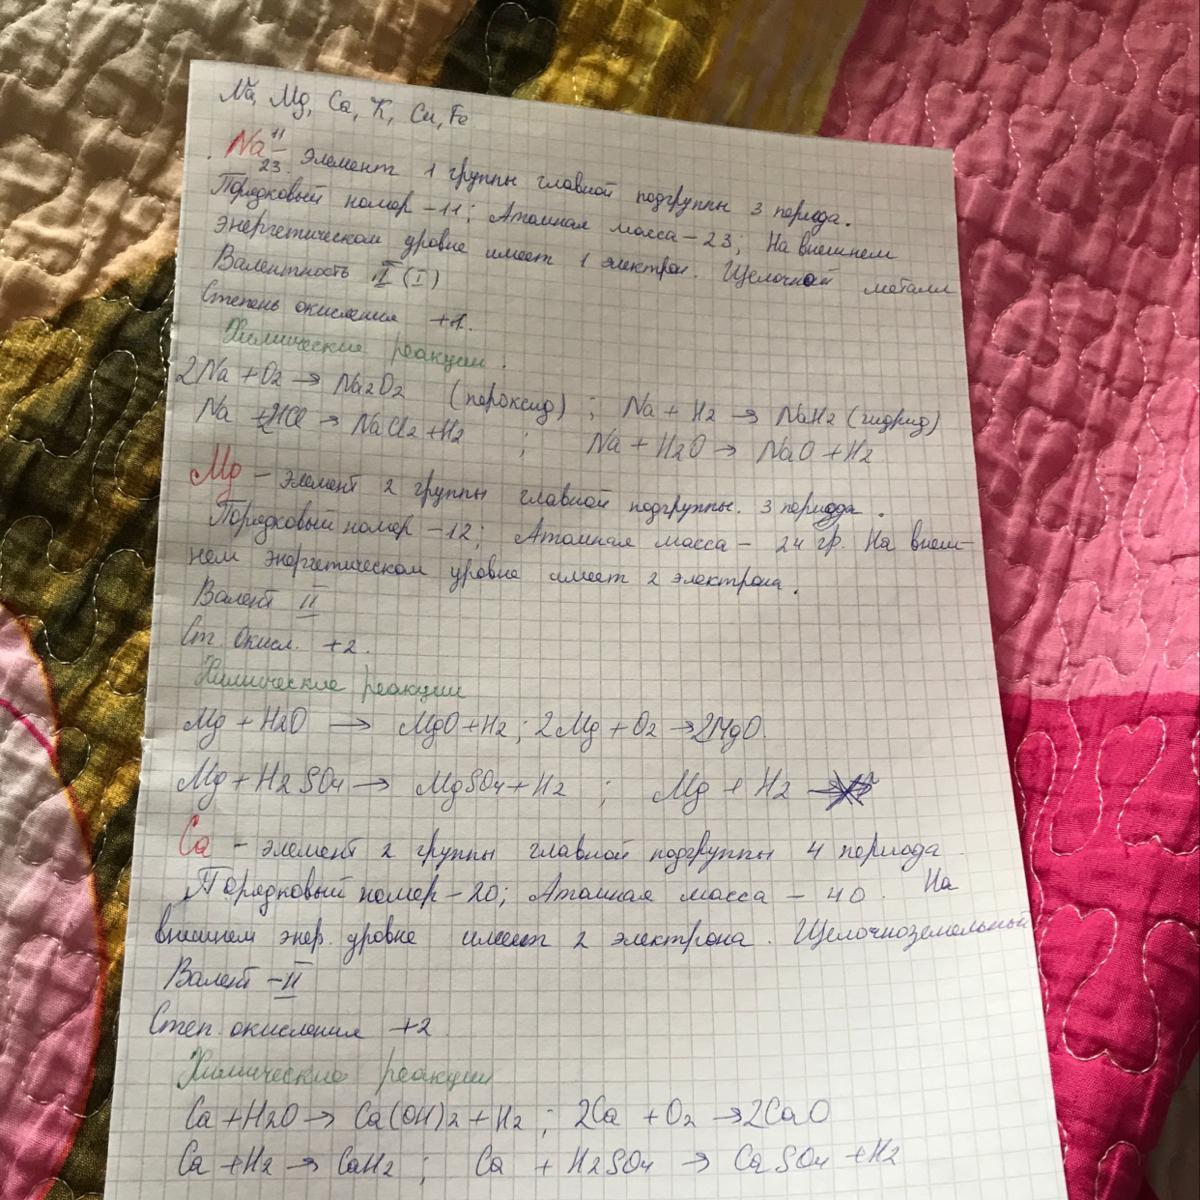 Na, Mg, Ca, K, Cu, Fe
Na 11 23 - элемент 1 группы главной подгруппы 3 периода.
Порядковый номер - 11; Атомная масса - 23; На внешнем
энергетическом уровне имеет 1 электрон. Щелочной металл
Валентность II (I)
Степень окисления +1.
Химические реакции.
2Na + O2 → Na2O2 (пероксид); Na + H2 → NaH2 (гидрид)
Na + 2HCl → NaCl2 + H2 ; Na + H2O → NaO + H2
Mg - элемент 2 группы главной подгруппы. 3 периода.
Порядковый номер - 12; Атомная масса - 24 гр. На внеш-
нем энергетическом уровне имеет 2 электрона.
Валент II
Ст. Окисл. +2.
Химические реакции
Mg + H2O → MgO + H2; 2Mg + O2 → 2MgO.
Mg + H2SO4 → MgSO4 + H2 ; Mg + H2
Ca - элемент 2 группы главной подгруппы 4 периода
Порядковый номер - 20; Атомная масса - 40. На
внешнем энер. уровне имеет 2 электрона. Щелочноземельный
Валент - II
Степ. окисления +2
Химические реакции
Ca + H2O → Ca(OH)2 + H2 ; 2Ca + O2 → 2CaO
Ca + H2 → CaH2 ; Ca + H2SO4 → CaSO4 + H2